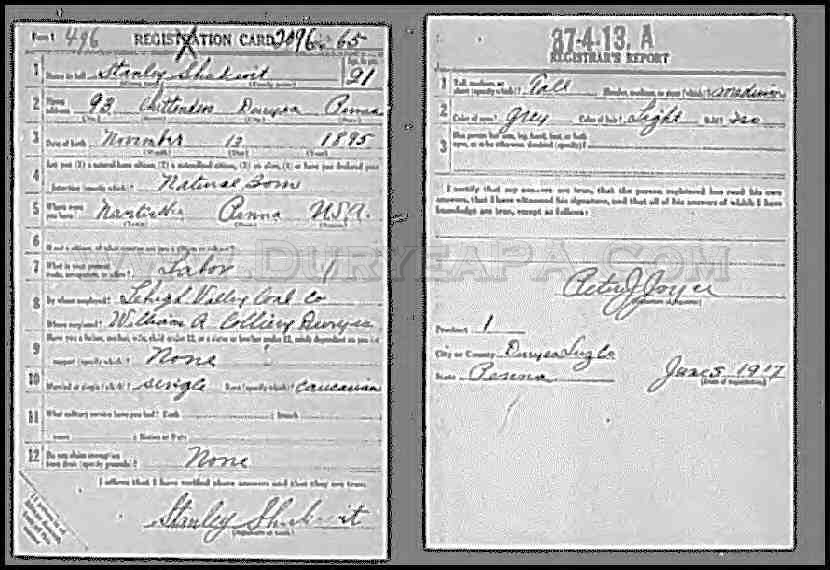 Form 1 496 REGISTRATION CARD 2096 65
1 Name in full Stanley Shukwit Age, in yrs. 21
2 Home address 93 Chittenden Duryea Penna
3 Date of birth November 13 1895
4 Are you (1) a natural-born citizen, (2) a naturalized citizen, (3) an alien, (4) or have you declared your
intention (specify which)? Natural Born
5 Where were you born? Nanticoke Penna U.S.A.
6 If not a citizen, of what country are you a citizen or subject?
7 What is your present trade, occupation, or office? Labor
8 By whom employed? Lehigh Valley Coal Co
Where employed? William A Colliery Duryea
9 Have you a father, mother, wife, child under 12, or a sister or brother under 12, solely dependent on you for
support (specify which)? None
10 Married or single (which)? single Race (specify which)? Caucasian
11 What military service have you had? Rank ; branch
years ; Nation or State
12 Do you claim exemption from draft (specify grounds)? None
I affirm that I have verified above answers and that they are true.
Stanley Shukwit
37-4-13. A
REGISTRAR'S REPORT
1 Tall, medium, or short (specify which)? Tall Slender, medium, or stout (which)? Medium
2 Color of eyes? Grey Color of hair? Light Bald? No
3 Has person lost arm, leg, hand, foot, or both
eyes, or is he otherwise disabled (specify)?
I certify that my answers are true, that the person registered has read his own
answers, that I have witnessed his signature, and that all of his answers of which I
have knowledge are true, except as follows:
WWW.DURYEAPA.COM
Peter J Joyce
Precinct 1
City or County Duryea Luz Co
State Penna June 5 1917
(Date of registration)